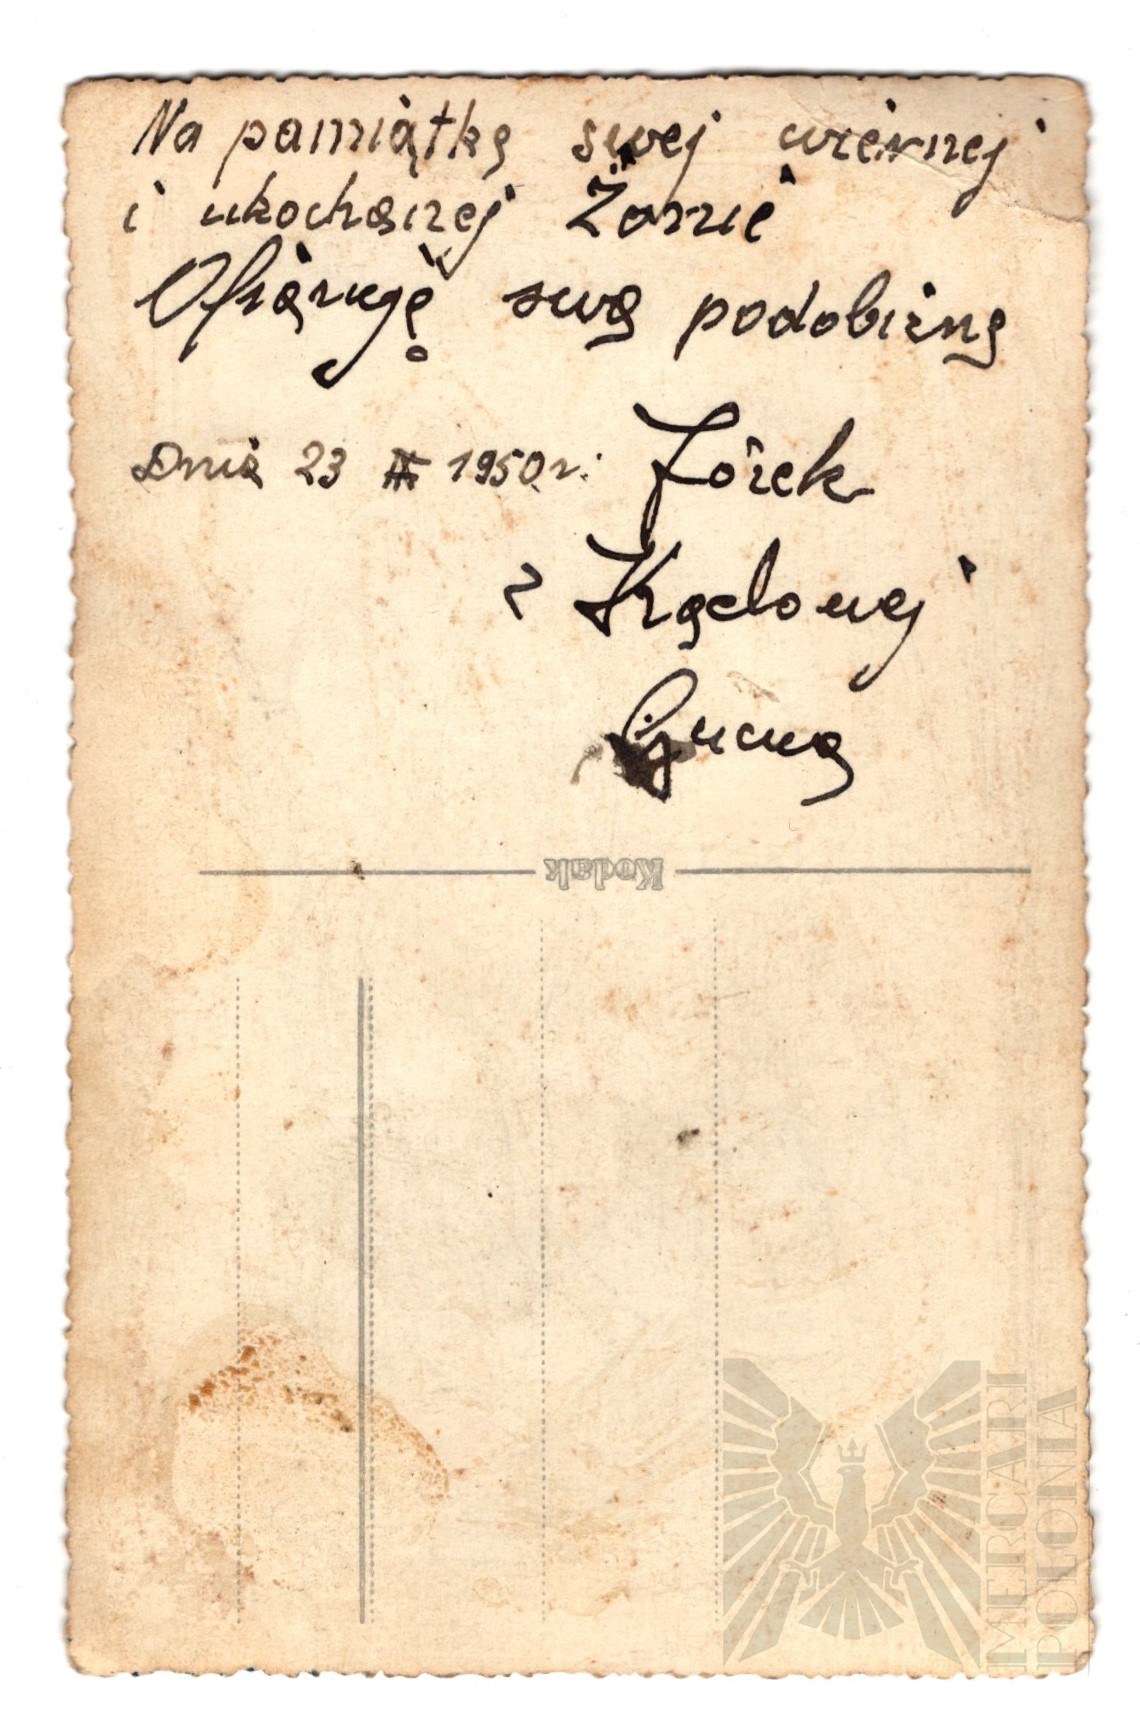 Na pamiątkę swej wiernej
i ukochanej Żonie
Ofiaruję swą podobiznę
Dnia 23 III 1950 r. Józek
z
Kodak
MERCARI
POLONIA